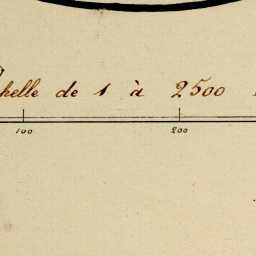 helle de 1 à 2500
100 200